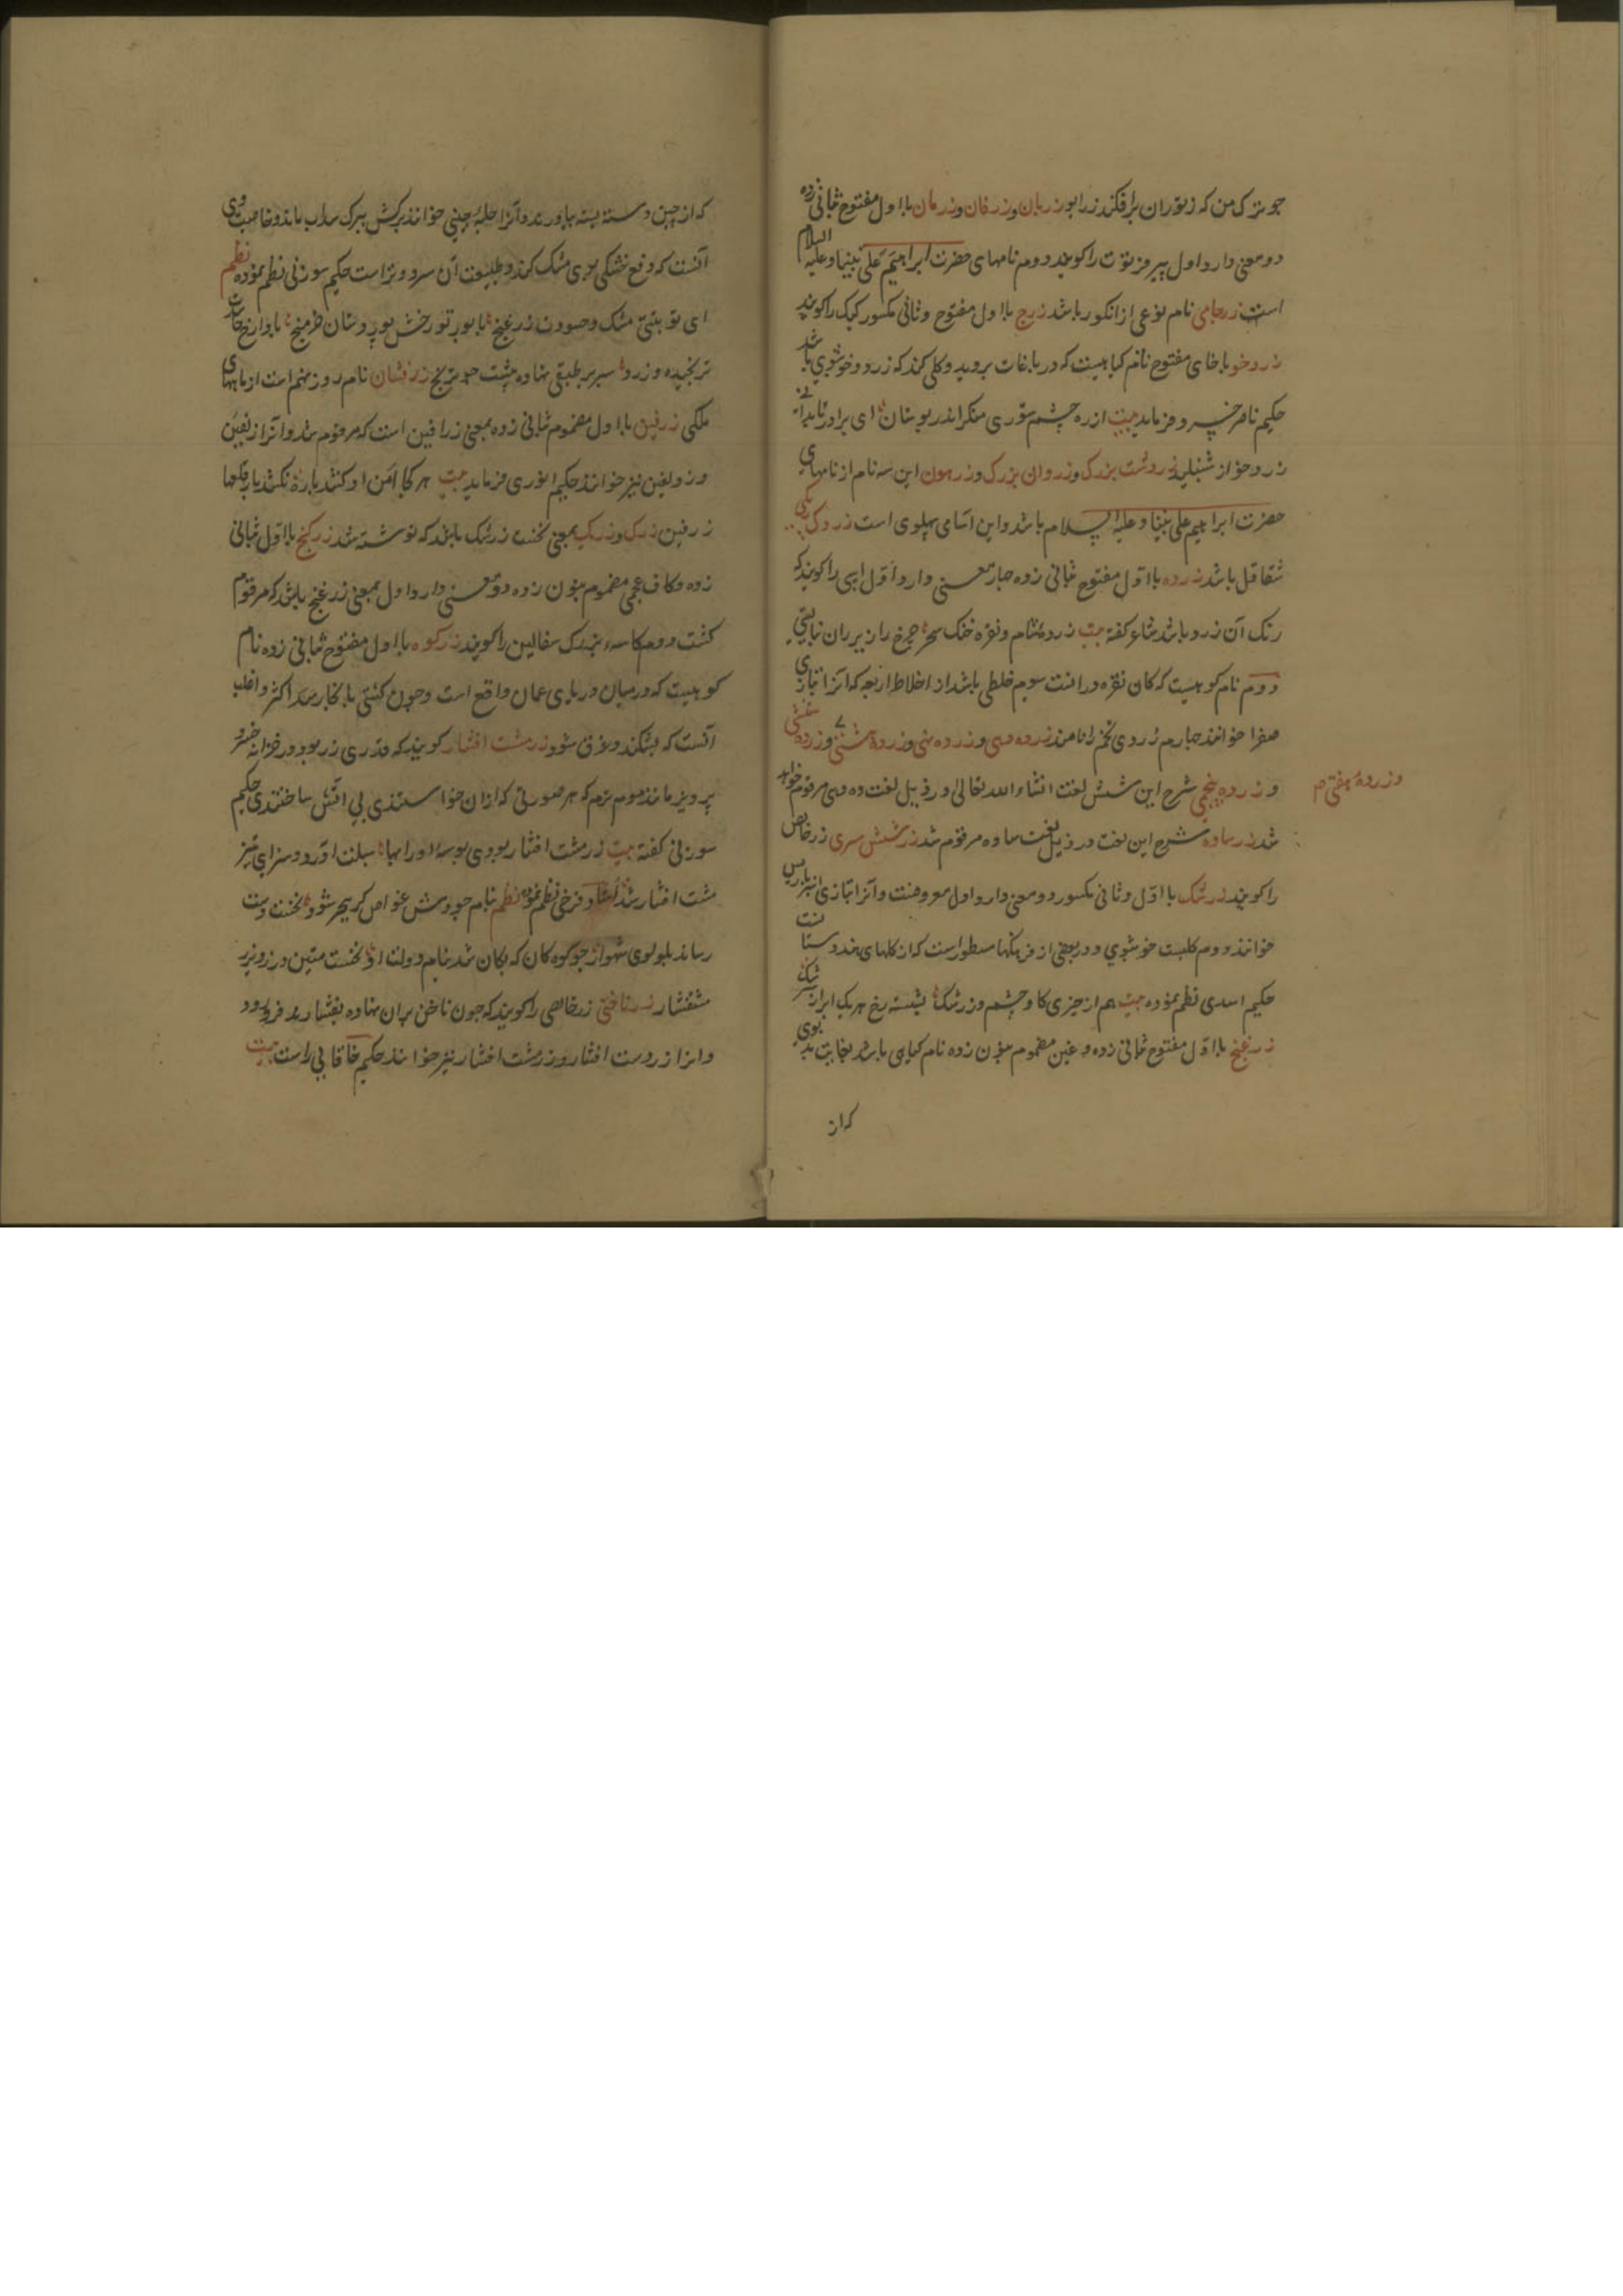 چو بترک من که زنوران برافکند زرابو زربان و زرفان و زرمان با اول مفتوح بثانی زده
دو معنی دارد اول پیر فرتوت را کویند دوم نامهای حضرت ابراهیم علی نبینا و علیه السلام
است زرجامی نام نوعی از انکور باشد زرج با اول مفتوح و ثانی مکسور کبک را کویند
زردخو با خای مفتوح نام کیاهیست که در باغات بروید و کلی کند که زرد و خوشبوی باشد
حکیم ناصر خسرو فرماید بیت از ره چشم ستوری منکر اندر بوستان ای برادر تا بدانی
زردخو از شنبلید زردشت بزرک و زروان بزرک و زرهون این سه نام از نامهای
حضرت ابراهیم علی نبینا و علیه السلام باشد و این اسامی پهلوی است زردک ریکی
شقاقل باشد زرده با اول مفتوح بثانی زده چار معنی دارد اول اسپی را کویند که
رنک آن زرد باشد شاعر کفته بیت زردهٔ شام و نقره خنک سحر چرخ را زیر ران نیابتی
دوم نام کوهیست که کان نقره در انست سوم خلطی باشد از اخلاط اربعه که آنرا بتازی
صفرا خوانند چهارم زردی تخم را نامند زرده دهی و زرده نهی و زردهٔ هشتی و زرده ششی
و زرده پنجی شرح این شش لغت انشاء الله تعالی در ذیل لغت ده دهی مرقوم خواهد
وزردهٔ هفتی م
شد زر ساوه شرح این لغت در ذیل لغت ساوه مرقوم شد زر شش سری زر خالص
را کویند زرشک با اول و ثانی مکسور دو معنی دارد اول معروفست و آنرا بتازی انبرباریس
خوانند دوم کلیست خوشبوی و در بعضی از فرهنکها مسطور است که از کلهای هندوستانست
حکیم اسدی نظم نموده بیت هم از خیری و کاوچشم و زرشک بشسته رخ هر یک ابر از سرشک
زرغنج با اول مفتوح بثانی زده و غین مضموم بنون زده نام کیاهی باشد بغایت بدبوی
که از
که از چین دسته بسته بیاورند و آنرا حلبهٔ چینی خوانند برکش ببرک سداب ماند و خاصیت وی
آنست که دفع خشکی بوی مشک کند و طبیعت آن سرد و تر است حکیم سوزنی نظم نموده نظم
ای تو بتبتی مشک و حسودت زرغنج با بوی تو رخش بوی دستان خرمنج با وارنج حادث
ترنجیده و زرد سر بر طبقی نهاده پشت چو ترنج زرفشان نام روز نهم است از ماههای
ملکی زرفین با اول مضموم بثانی زده بمعنی زرافین است که مرقوم شد و آنرا زلفین
و زولفین نیز خوانند حکیم انوری فرماید بیت هر کجا امن او کشد باره نکشد بار قلعها
زرفین زرک و زریک بمعنی نخست زرشک باشد که نوشته شد زرکنج با اول بثانی
زده و کاف عجمی مضموم بنون زده دو معنی دارد اول بمعنی زرغنج باشد که مرقوم
کشت دوم کاسهٔ بزرک سفالین را کویند زرکوه با اول مفتوح بثانی زده نام
کوهیست که در میان دریای عمان واقع است و چون کشتی بانجا رسد اکثر و اغلب
آنست که بشکند و غرق شود زر مشت افشار کویند که قدری زر بود در خزانه خسرو
پرویز مانند موم نرم که هر صورتی که از ان خواستندی بی آتش ساختندی حکیم
سوزنی کفته بیت زر مشت افشار بودی بوسه او را بها سبلت آورد و سزای تیز
مشت افشار شد استاد فرخی نظم نموده نظم بنام جودش غواص کر ببحر شود نخست دست
رساند بلولوی شهوار چو کوه کان که بکان شد بنام دولت او نخست متین در زد بزر
مشتفشار زر ناخنی زر خالصی را کویند که چون ناخن بر ان نهاده بفشارند فرو رود
و انرا زر دست افشار و زر مشت افشار نیز خوانند حکیم خاقانی راست بیت